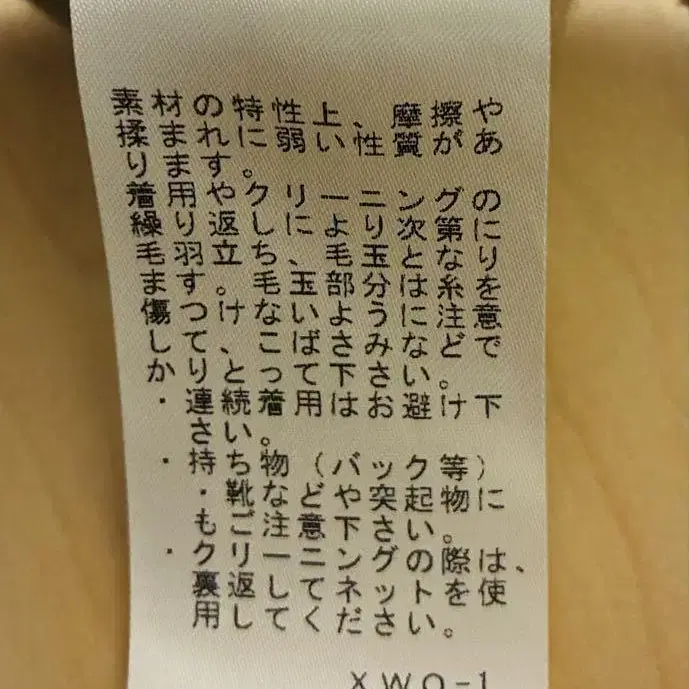 素材の特性上、摩擦や
揉まれに弱い性質があ
ります。
着用やクリーニングの
繰り返しにより次第に
毛羽立ち、毛玉となり
ます。毛玉部分は糸を
傷つけないように注意
して、こばさみなどで
かりとって下さい。
・連続着用はお避け下
さい。
・持ち物（バック等）
・靴などや突起物に
もご注意下さい。
・クリーニングの際は、
裏返してネットを使
用してください。